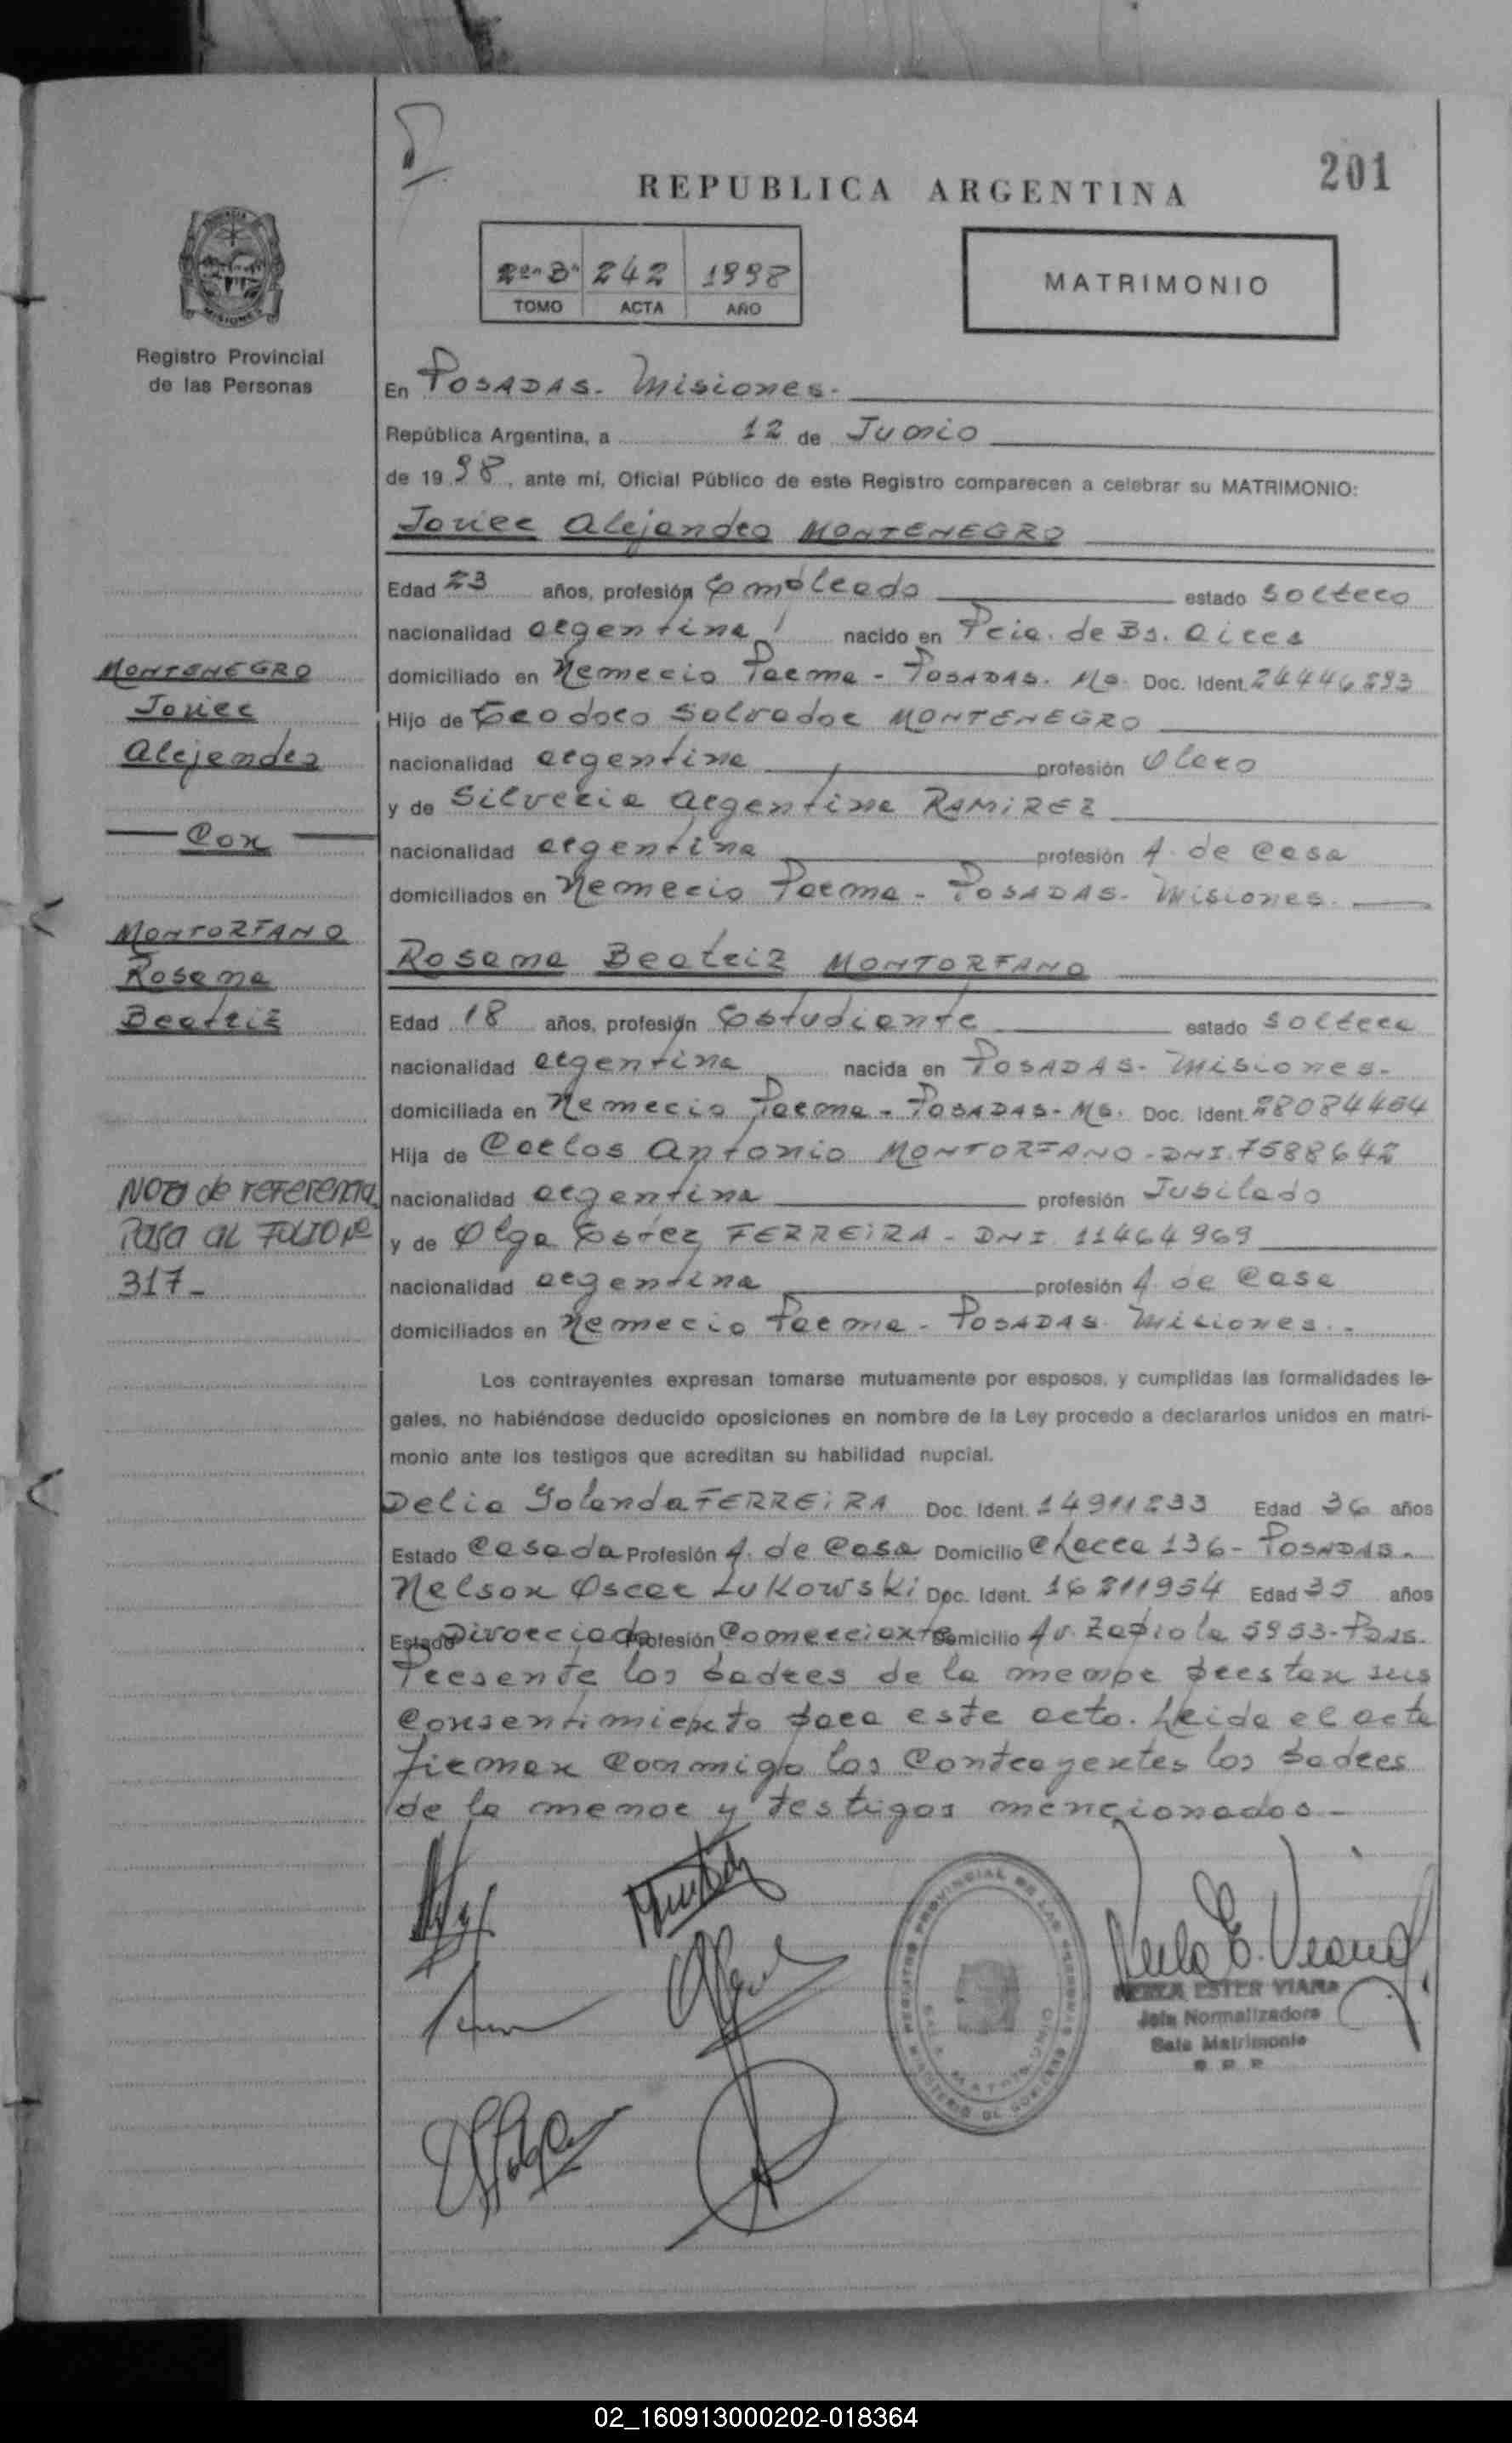 201
REPUBLICA ARGENTINA
2do B° 242 1998
TOMO ACTA AÑO
MATRIMONIO
Registro Provincial
de las Personas
En POSADAS - Misiones -
República Argentina, a 12 de Junio
de 19 98, ante mí, Oficial Público de este Registro comparecen a celebrar su MATRIMONIO:
Javier Alejandro MONTENEGRO
Edad 23 años, profesión Empleado estado soltero
nacionalidad argentina nacido en Pcia. de Bs. Aires
domiciliado en Nemecio Parma - POSADAS. Ms. Doc. Ident. 24446893
Hijo de Teodoro Salvador MONTENEGRO
nacionalidad argentina profesión Olero
y de Silveria Argentina RAMIREZ
nacionalidad argentina profesión A. de Casa
domiciliados en Nemecio Parma - POSADAS - Misiones.
Rosana Beatriz MONTORFANO
Edad 18 años, profesión Estudiante estado soltera
nacionalidad argentina nacida en POSADAS - Misiones -
domiciliada en Nemecio Parma - POSADAS - Ms. Doc. Ident. 28084454
Hija de Carlos Antonio MONTORFANO - DNI. 7588642
nacionalidad argentina profesión Jubilado
y de Olga Ester FERREIRA - DNI 11464969
nacionalidad argentina profesión A. de Casa
domiciliados en Nemecio Parma - POSADAS - Misiones. -
MONTENEGRO
Javier
Alejandro
Con
MONTORFANO
Rosana
Beatriz
Nota de referencia
Pasa al FOLIO Nº
317 -
Los contrayentes expresan tomarse mutuamente por esposos, y cumplidas las formalidades le-
gales, no habiéndose deducido oposiciones en nombre de la Ley procedo a declararlos unidos en matri-
monio ante los testigos que acreditan su habilidad nupcial.
Delia Yolanda FERREIRA Doc. Ident. 14911233 Edad 36 años
Estado Casada Profesión A. de Casa Domicilio Chacra 136 - POSADAS.
Nelson Oscar Lukowski Doc. Ident. 16211954 Edad 35 años
Estado Divorciado Profesión Comerciante Domicilio Av. Zapiola 5953 - Pdas.
Presente los padres de la menor prestan sus
Consentimiento para este acto. Leida el acta
firman Conmigo los Contrayentes los padres
de la menor y testigos mencionados -
REGISTRO PROVINCIAL DE LAS PERSONAS
MINISTERIO DE GOBIERNO
PERLA ESTER VIANA
Jefa Normalizadora
Sala Matrimonio
R P P
02_160913000202-018364